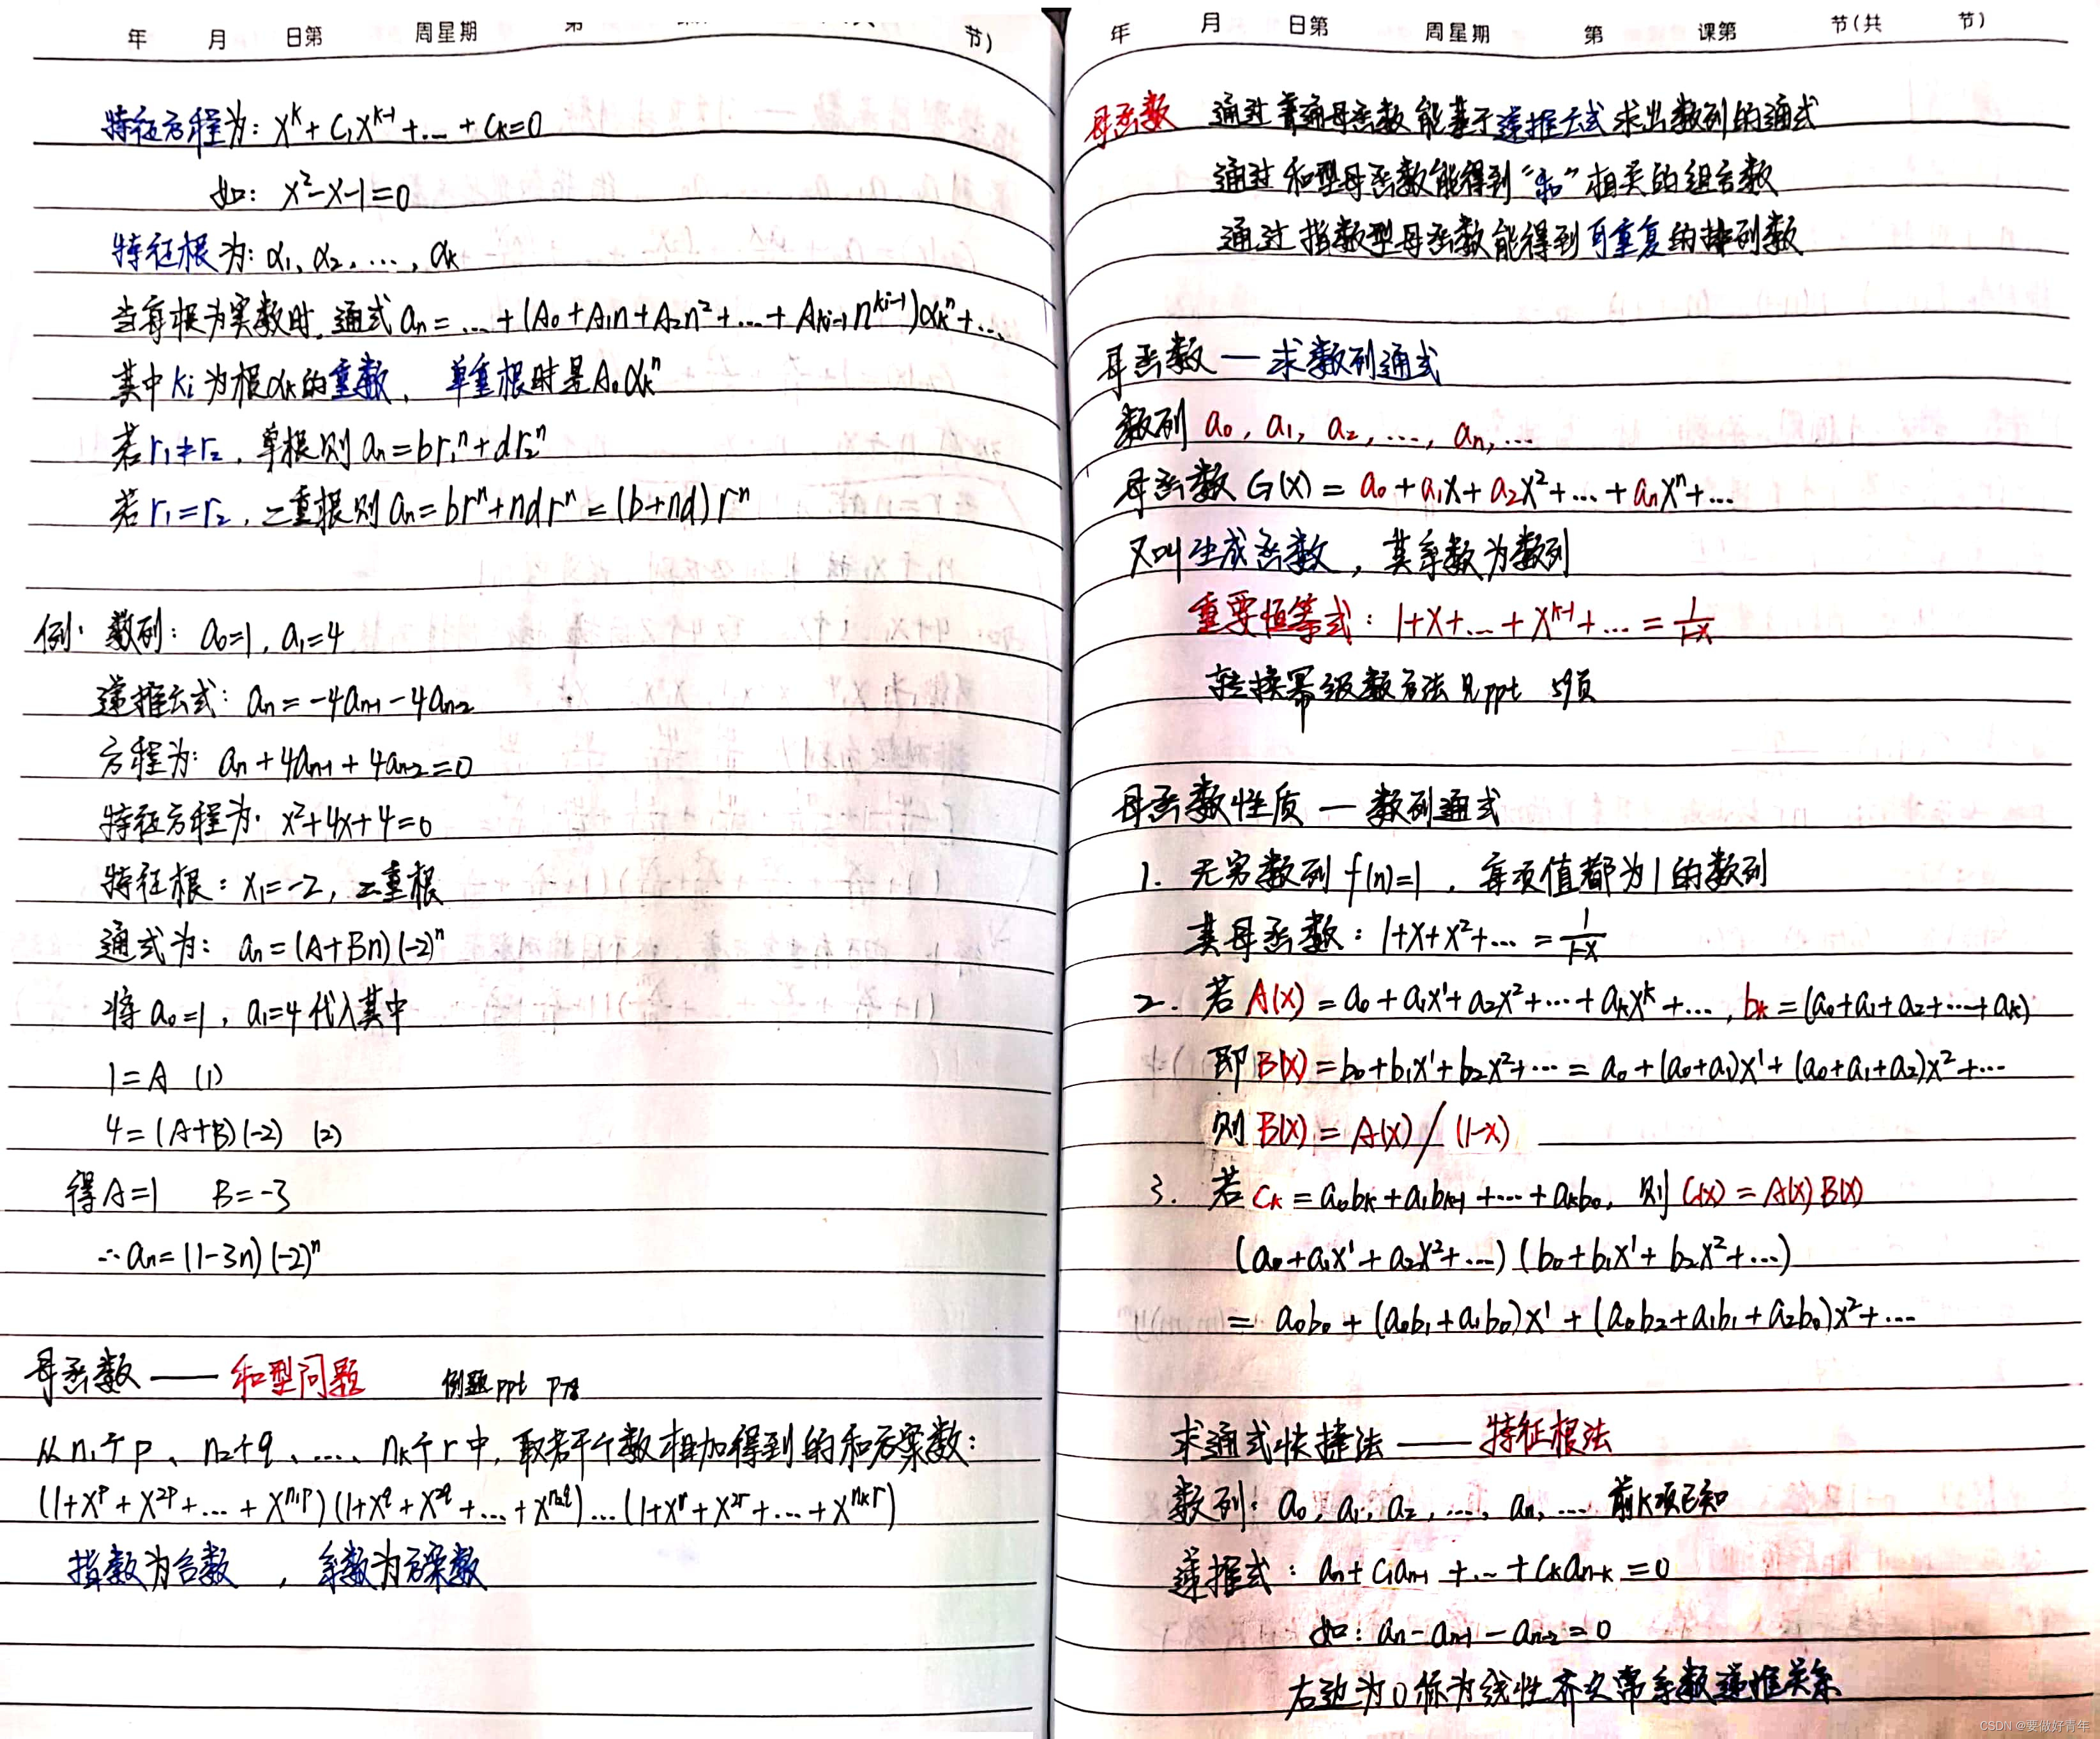 年 月 日第 周星期 第 节)
特征方程为: x^k + C₁x^{k-1} + … + Ck = 0
如: x²-x-1=0
特征根为: α₁、α₂, …, αk
当每根为实数时, 通式 an = … + (A₀ + A₁n + A₂n² + … + A_{ki-1} n^{ki-1})αk^n + …
其中 ki 为根αk的重数, 单重根时是A₀αk^n
若 r₁≠r₂, 单根则 an = br₁^n + dr₂^n
若 r₁=r₂, 二重根则 an = br^n + ndr^n = (b+nd)r^n
例: 数列: a₀=1, a₁=4
递推公式: an = -4a_{n-1} - 4a_{n-2}
方程为: an + 4a_{n-1} + 4a_{n-2} = 0
特征方程为: x²+4x+4=0
特征根: x₁=-2, 二重根
通式为: an = (A+Bn)(-2)^n
将 a₀=1, a₁=4 代入其中
1=A (1)
4=(A+B)(-2) (2)
得A=1 B=-3
∴ an = (1-3n)(-2)^n
母函数 —— 和型问题 例题ppt P78
从 n₁个p、n₂个q、…、nk个r中, 取若干个数相加得到的和方案数:
(1+x^p+x^{2p}+…+x^{n₁p})(1+x^q+x^{2q}+…+x^{n₂q})…(1+x^r+x^{2r}+…+x^{nkr})
指数为合数, 系数为方案数
年 月 日第 周星期 第 课第 节(共 节)
母函数 通过普通母函数能基于递推公式求出数列的通式
通过和型母函数能得到“和”相关的组合数
通过指数型母函数能得到可重复的排列数
母函数 — 求数列通式
数列 a₀, a₁, a₂, …, an, …
母函数 G(x) = a₀ + a₁x + a₂x² + … + anx^n + …
又叫生成函数, 其系数为数列
重要恒等式: 1+x+…+x^{k-1}+… = 1/(1-x)
转换幂级数方法见ppt 59页
母函数性质 — 数列通式
1. 无穷数列 f(n)=1, 每项值都为1的数列
其母函数: 1+x+x²+… = 1/(1-x)
2. 若 A(x) = a₀ + a₁x¹ + a₂x² + … + akx^k + …, bk = (a₀+a₁+a₂+…+ak)
即 B(x) = b₀+b₁x¹+b₂x²+… = a₀ + (a₀+a₁)x¹ + (a₀+a₁+a₂)x² + …
则 B(x) = A(x) / (1-x)
3. 若 Ck = a₀bk + a₁b_{k-1} + … + akb₀, 则 C(x) = A(x)B(x)
(a₀+a₁x¹+a₂x²+…)(b₀+b₁x¹+b₂x²+…)
= a₀b₀ + (a₀b₁+a₁b₀)x¹ + (a₀b₂+a₁b₁+a₂b₀)x² + …
求通式快捷法 —— 特征根法
数列: a₀, a₁, a₂, …, an, … 前k项已知
递推式: an + C₁a_{n-1} + … + Cka_{n-k} = 0
如: an - a_{n-1} - a_{n-2} = 0
右边为0称为线性齐次常系数递推关系
CSDN @要做好青年